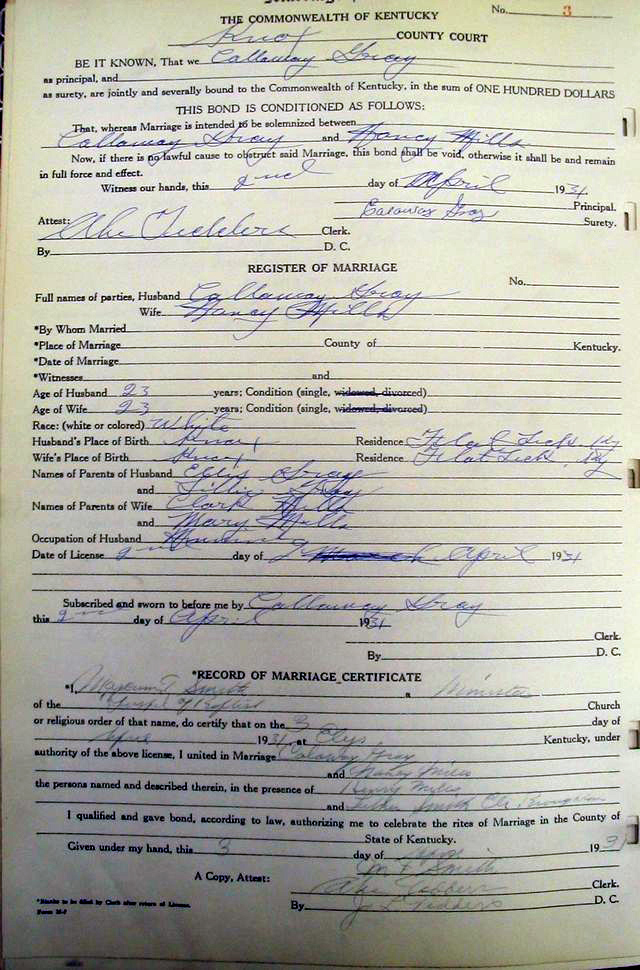 No. 3
THE COMMONWEALTH OF KENTUCKY
Knox COUNTY COURT
BE IT KNOWN, That we Callaway Gray
as principal, and
as surety, are jointly and severally bound to the Commonwealth of Kentucky, in the sum of ONE HUNDRED DOLLARS
THIS BOND IS CONDITIONED AS FOLLOWS:
That, whereas Marriage is intended to be solemnized between
Callaway Gray and Nancy Mills
Now, if there is no lawful cause to obstruct said Marriage, this bond shall be void, otherwise it shall be and remain
in full force and effect.
Witness our hands, this 2nd day of April 1931
Principal.
Gray Surety.
Attest:
Abe Tedders Clerk.
By D. C.
REGISTER OF MARRIAGE
No.
Full names of parties, Husband Callaway Gray
Wife Nancy Mills
*By Whom Married
*Place of Marriage County of Kentucky.
*Date of Marriage
*Witnesses and
Age of Husband 23 years; Condition (single, widowed, divorced)
Age of Wife 23 years; Condition (single, widowed, divorced)
Race: (white or colored) White
Husband's Place of Birth Knox Residence Flat Lick, Ky
Wife's Place of Birth Knox Residence Flat Lick, Ky
Names of Parents of Husband Gray
and Gray
Names of Parents of Wife Clark Mills
and Mary Mills
Occupation of Husband
Date of License 2nd day of March April 1931
Subscribed and sworn to before me by Callaway Gray
this 2nd day of April 1931
Clerk.
By D. C.
*RECORD OF MARRIAGE CERTIFICATE
*I, Smith a Minister
of the Gospel of Baptist Church
or religious order of that name, do certify that on the 3 day of
April 1931, at Elys Kentucky, under
authority of the above license, I united in Marriage Calaway Gray
and Nancy Mills
the persons named and described therein, in the presence of Henry Mills
and Smith
I qualified and gave bond, according to law, authorizing me to celebrate the rites of Marriage in the County of
State of Kentucky.
Given under my hand, this 3 day of 1931
M T Smith
A Copy, Attest: Clerk.
By J L Tedders D. C.
*Blanks to be filled by Clerk after return of License.